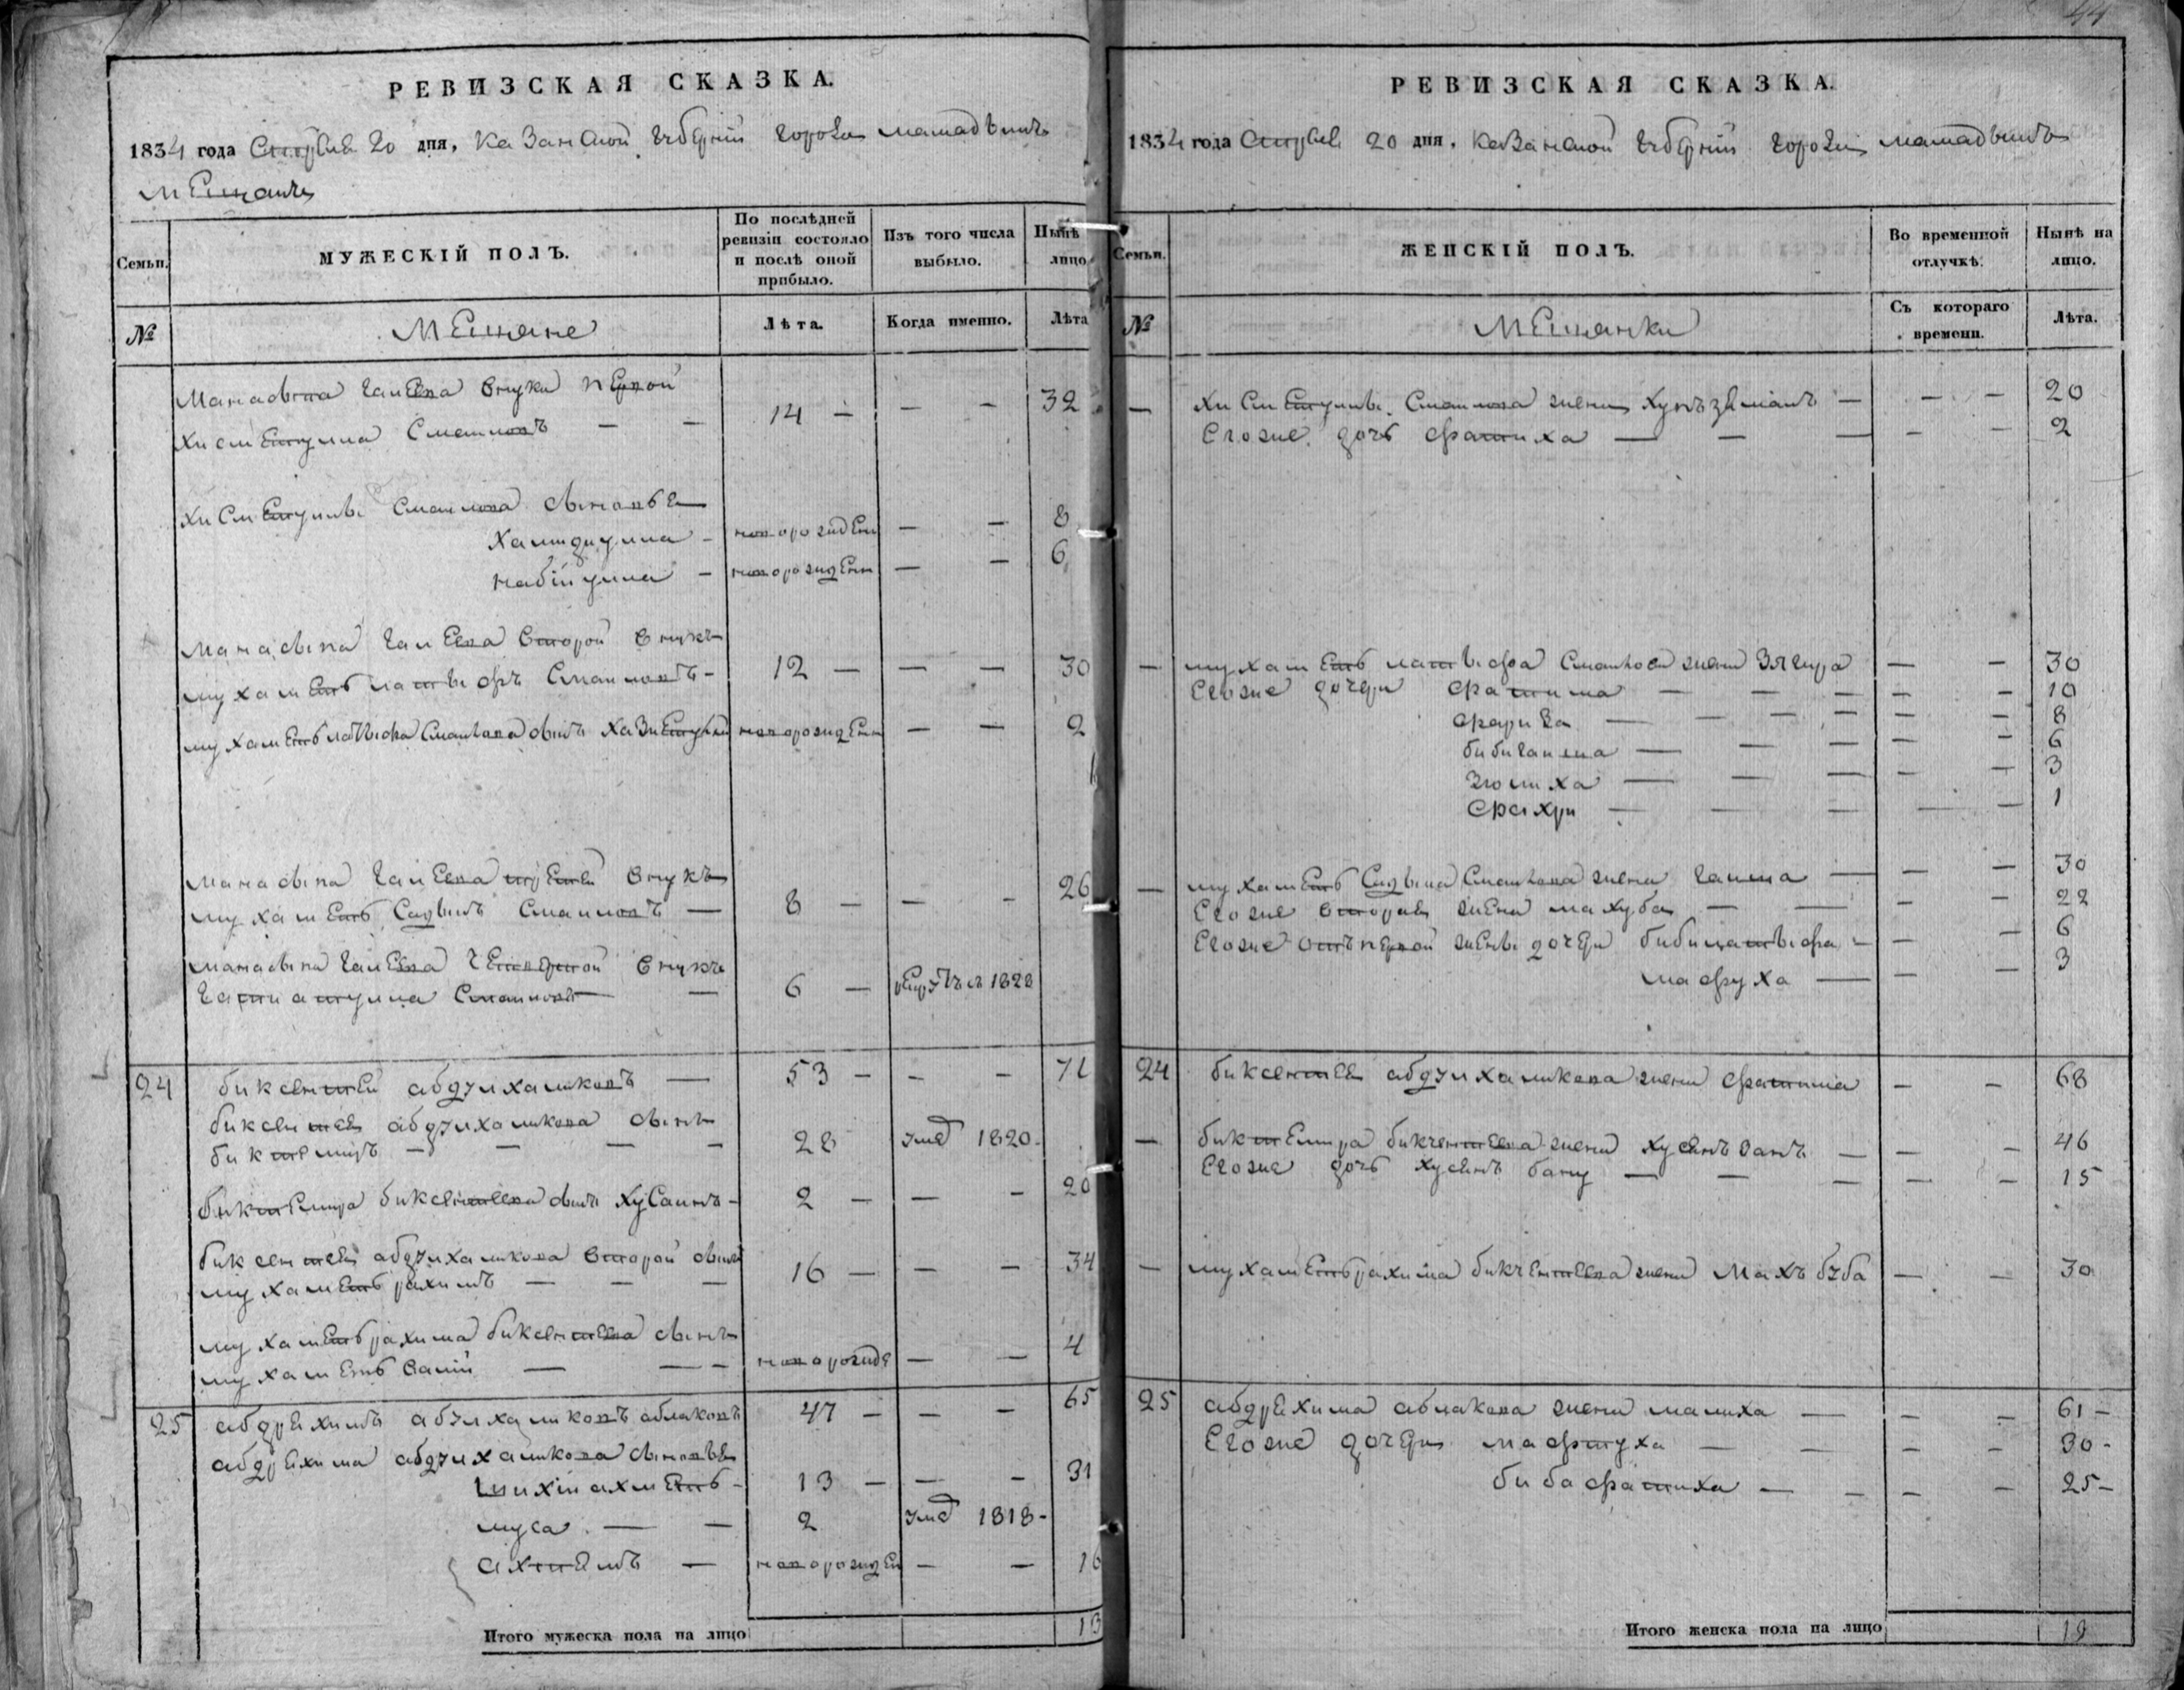 44
РЕВИЗСКАЯ СКАЗКА.
1834 года Апреля 20 дня, Казанской губерній города мамадышъ
мещанъ
Семьи.
МУЖЕСКІЙ ПОЛЪ.
По послѣдней ревизіи состояло и послѣ оной прибыло.
Изъ того числа выбыло.
Нынѣ лицо
№
Мещане
Лѣта.
Когда именно.
Лѣта
Манасыпа Галеева внуки первой
Хисметулла Смаиловъ — — 14 — — — 32
Хисметуллы Смаилова сыновья
Хамидулла - новорожден — — 8
набіулла — новорожденн — — 6
Манасыпа Галеева второй внукъ
мухаметь латыфъ Смаиловъ - 12 — — — 30
мухаметь латыфа Смаилова сынъ новорожденн — — 2
Манасыпа Галеева третей внукъ
мухаметь Садыкъ Смаиловъ — 8 — — - 26
манасыпа Галеева четвертой внукъ
Смаиловъ — 6 — 1828
24 биксентей абдулхаликовъ — 53 — - - 71
биксентея абдулхаликова сынъ
биктемиръ — — — — 28 умре 1820.
биктемира биксентеева сынъ Хусаинъ - 2 — — - 20
биксентея абдулхаликова второй сынъ
мухаметь рахимъ — — — 16 — — - 34
мухаметь рахима биксентеева сынъ
мухаметь — — - новорожде — — 4
25 абдрахимъ абдулхаликовъ аблаковъ 47 — — - 65
абдрахима абдулхаликова сыновья
Шихіахметь - 13 — — - 31
муса. — — 2 умре 1818-
ахтямъ — новорожден — — 16
Итого мужеска пола на лицо 13
РЕВИЗСКАЯ СКАЗКА.
1834 года Апреля 20 дня, Казанской губерній города мамадышъ
Семьи.
ЖЕНСКІЙ ПОЛЪ.
Во временной отлучкѣ.
Нынѣ на лицо.
№
Мещанки
Съ котораго времени.
Лѣта.
— Хисметуллы Смаилова жена — — — 20
Егоже дочь фатиха — — — - — 2
— мухаметь латыфа Смаилова жена Зягира — — 30
Егоже дочери фатима — — — — — 10
фариза — — — — — — 8
бибигалима — — — — — 6
Зюлиха — — — — — 3
Фахри — — — — — 1
— мухаметь Садыка Смаилова жена — — — 30
Егоже вторая жена махуба — — — — 22
Егоже отъ первой жены дочери бибилатыфа — — — 6
мафруха — — — 3
24 биксентея абдулхаликова жена фатима — — 68
— биктемира бикчентеева жена — — - 46
Егоже дочь хусенъ бану — — — — — 15
— мухаметь рахима бикчентеева жена Махъ буба — — 30
25 абдрахима аблакова жена малиха — — — 61 —
Егоже дочери — — — — 30-
биби фатиха — — — — 25—
Итого женска пола на лицо 19